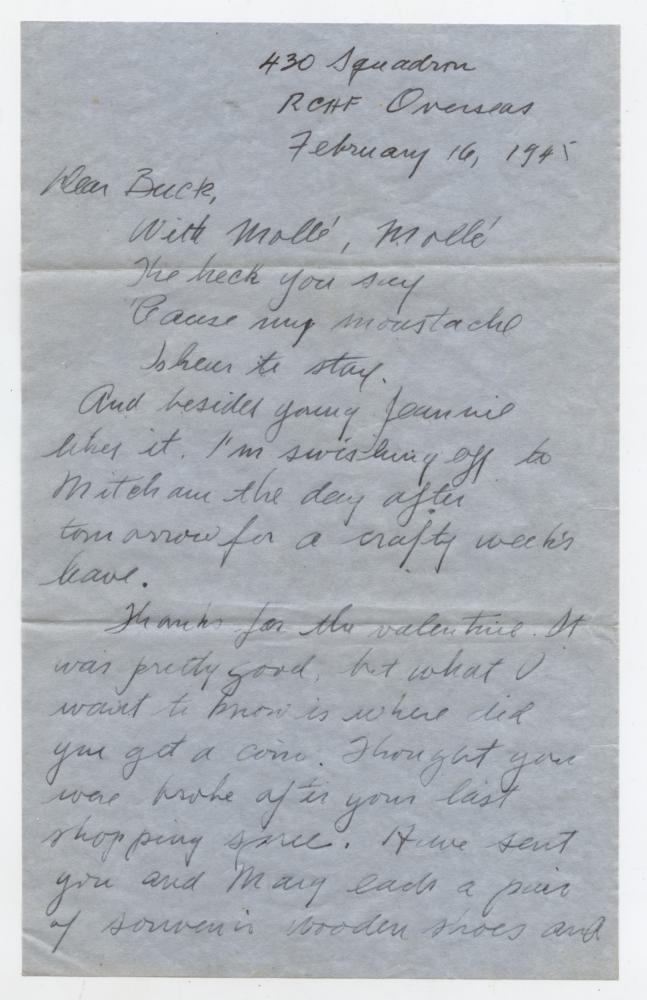 430 Squadron
RCAF Overseas
February 16, 1945
Dear Buck,
With Mollé, Mollé
The heck you say
'Cause my moustache
Is hear to stay.
And besides young Jeannie
likes it. I'm swishing off to
Mitcham the day after
tomorrow for a crafty week's
leave.
Thanks for the valentine. It
was pretty good, but what I
want to know is where did
you get a coin. Thought you
were broke after your last
shopping spree. Have sent
you and Mary each a pair
of souvenir wooden shoes and